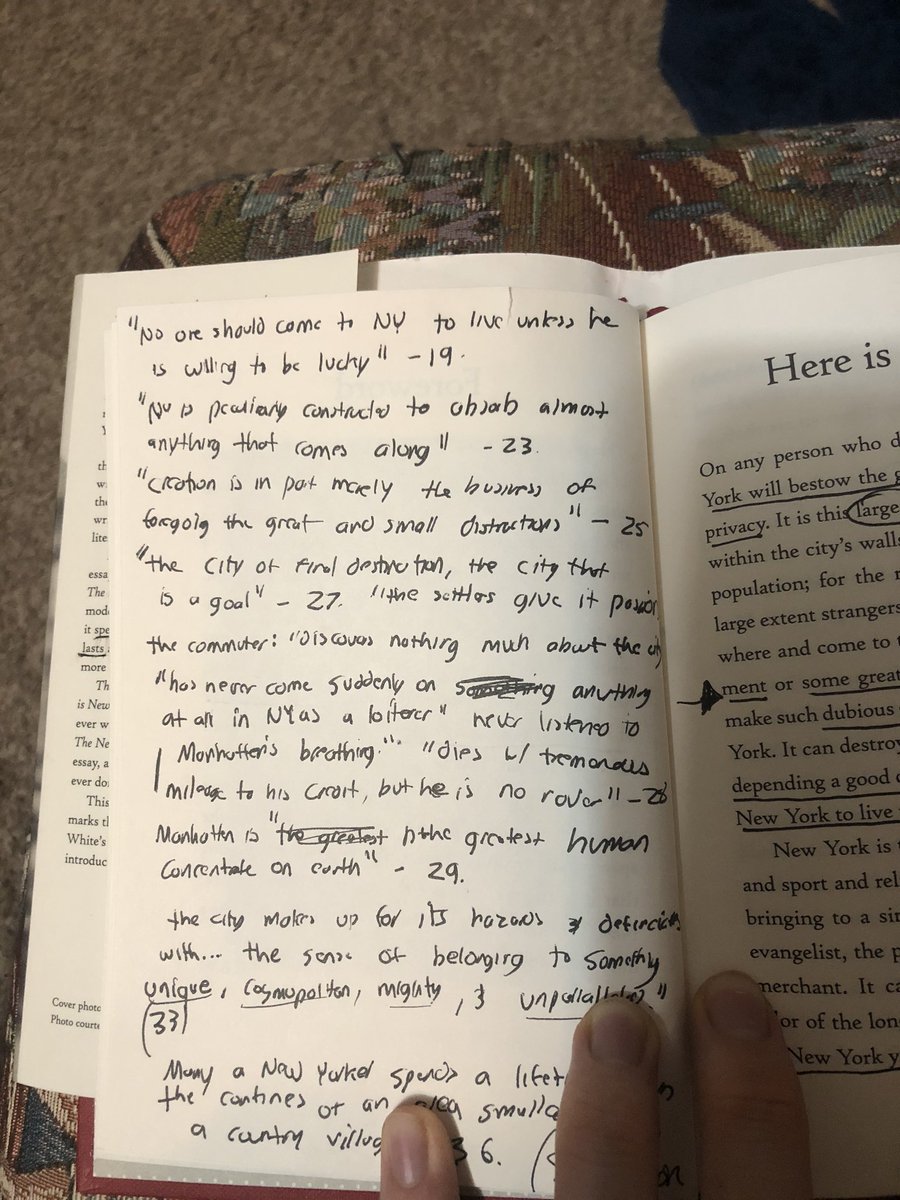 "No one should come to NY to live unless he
is willing to be lucky" - 19.
"NY is peculiarly constructed to absorb almost
anything that comes along" - 23.
"Creation is in part merely the business of
forgoing the great and small distractions" - 25
"the city of final destination, the city that
is a goal" - 27. "the settlers give it passion
the commuter: "Discovers nothing much about the city
"has never come suddenly on something anything
at all in NY as a loiterer" never listened to
Manhatten's breathing." "dies w/ tremendous
mileage to his credit, but he is no rover" - 28
Manhatten is "the greatest the greatest human
concentrate on earth" - 29.
the city makes up for its hazards & deficiencies
with... the sense of belonging to something
unique, cosmopolitan, mighty, & unparalleled"
(33)
Many a New Yorker spends a
the confines of an area smaller
a country village 36.
Here is
On any person who
York will bestow the
privacy. It is this large
within the city's walls
population; for the
large extent strangers
where and come to
ment or some great
make such dubious
York. It can destroy
depending a good
New York to live
New York is
and sport and
bringing to a
evangelist, the
merchant. It
of the
New York
Foreword
the
essa
The
it spe
lasts
more
is New
ever w
The Ne
essay, a
ever do
This
marks
White's
introduc
Cover photo
Photo courte